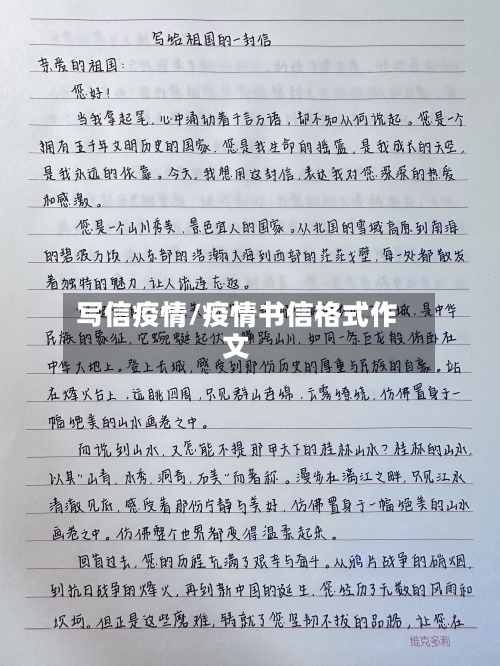 写给祖国的一封信
亲爱的祖国：
您好！
当我拿起笔，心中涌动着千言万语，却不知从何说起。您是一个
拥有五千年文明历史的国家，您是我生命的摇篮，是我成长的天空，
是我永远的依靠。今天，我想用这封信，表达我对您深深的热爱
和感激。
您是一个山川秀美，景色宜人的国家。从北国的雪域高原到南海
的碧波万顷，从东部的浩瀚大海到西部的茫茫戈壁，每一处都散发
着独特的魅力，让人流连忘返。
城，是中华
写信疫情/疫情书信格式作
文
民族的象征，它蜿蜒起伏 跨山川，如同一条巨龙般俯卧在
中华大地上。登上长城，感受到那份历史的厚重与民族的自豪。站
在烽火台上，远眺四周，只见群山连绵，云雾缭绕，仿佛置身于一
幅绝美的山水画卷之中。
而说到山水，又怎能不提那甲天下的桂林山水？桂林的山水，
以其"山青，水秀，洞奇，石美"而著称。漫步在漓江之畔，只见江水
清澈见底，感受着那份宁静与美好，仿佛置身于一幅绝美的山水
画卷之中。仿佛整个世界都变得温柔起来。
回首过去，您的历程充满了艰辛与奋斗。从鸦片战争的硝烟，
到抗日战争的烽火，再到新中国的诞生，您经历了无数的风雨和
坎坷。但正是这些磨难，铸就了您坚韧不拔的品格，让您在
维克多利